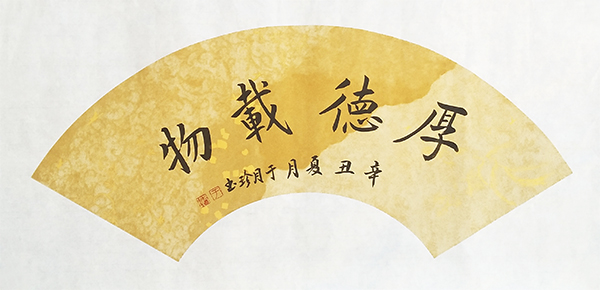 厚德載物
辛丑夏月于月珍书